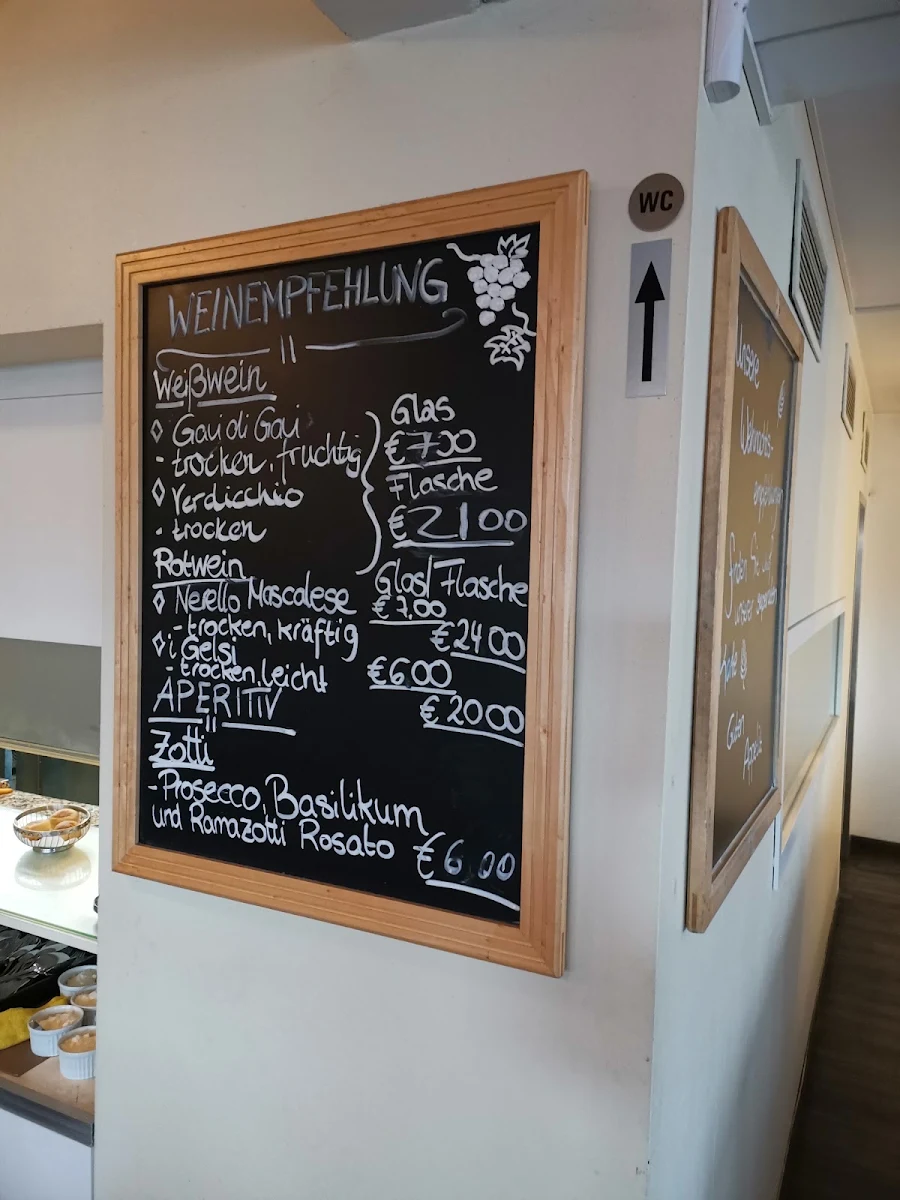 WEINEMPFEHLUNG
Weißwein
Gavi di Gavi
- trocken, fruchtig
Verdicchio
- trocken
Glas
€ 7.00
Flasche
€ 21 00
Rotwein
Glas/Flasche
Nerello Mascalese
€ 7.00
- trocken, kräftig
€ 24 00
i Gelsi
- trocken, leicht
€ 6 00
€ 20 00
APERITIV
Zotti
- Prosecco, Basilikum
und Ramazotti Rosato
€ 6.00
WC
Unsere
Weihnachts-
empfehlungen
finden Sie auf
unserer separaten
Karte
Guten
Appetit